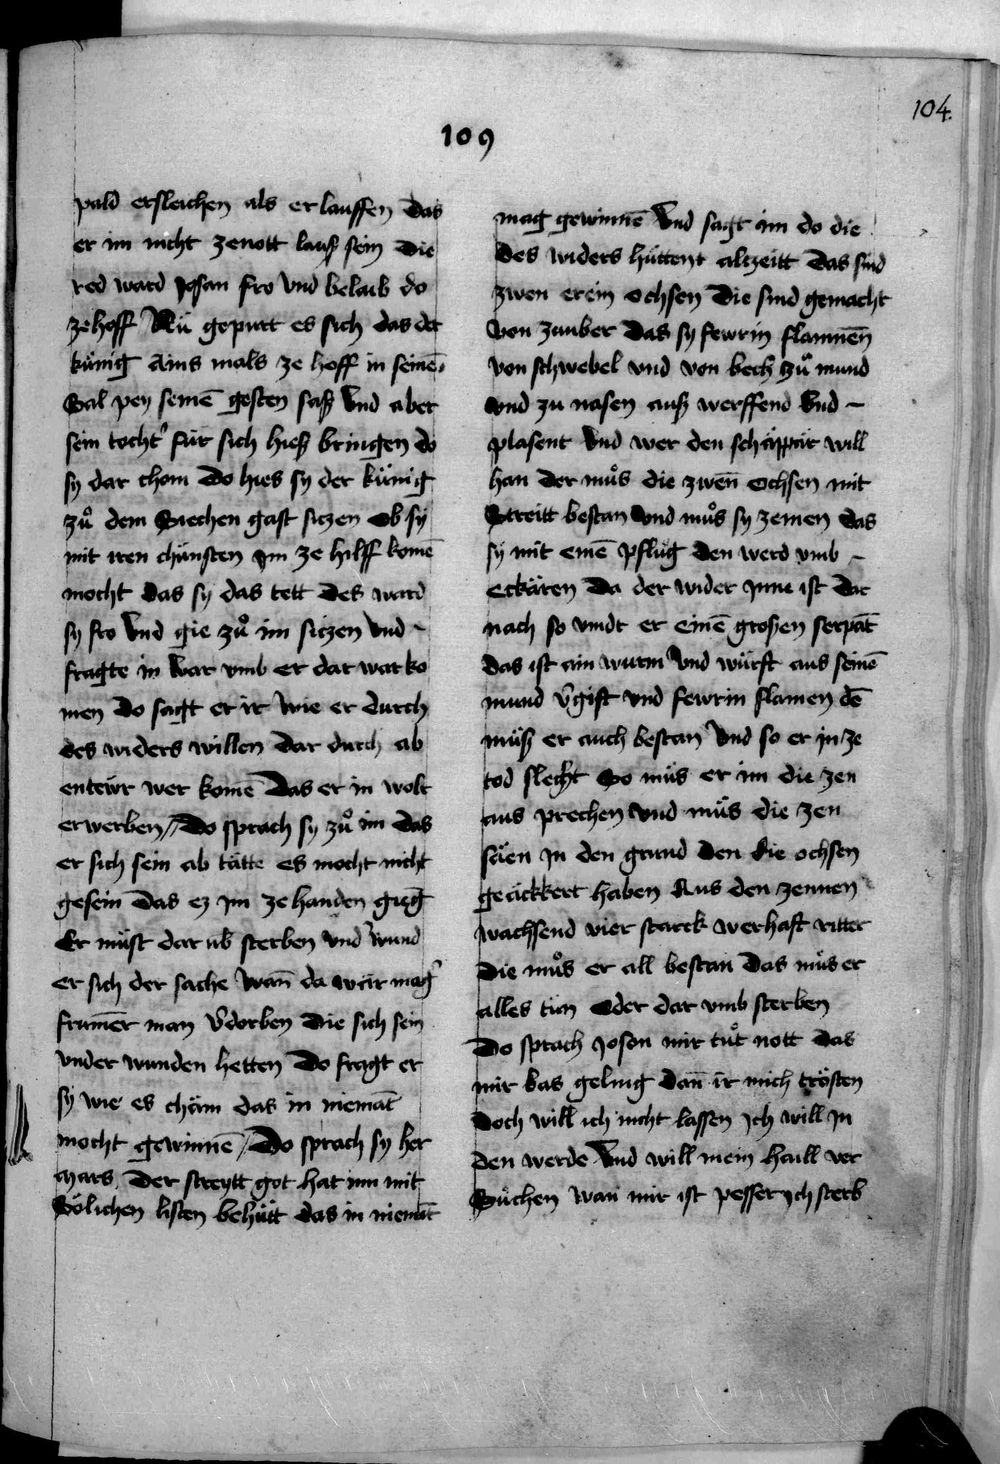 104.
109
pald ersleichen als er lauffen Das
er im nicht zenott lauſ sein Die
red ward Josan fro vnd belaib do
ze hoff Nu gepurt es sich das der
künig Ains mals ze hoff in seinē
Sal pey seinē gesten saß Vnd aber
sein tocht' für sich hieß bringen do
sy dar chom Do hies sy der künig
zů dem Siechen gast siczen Ob sy
mit iren chünsten Im ze hilff komē
mocht das sy das tett Des ward
sy fro Vnd gie zů im siczen vnd –
fragte in War vmb er dar war ko
men Do sagt er ir Wie er durch
des widers willen Dar durch ab
entewr wer komē Das er in wolt
erwerben // Do sprach sy zů im das
er sich sein ab tätte es mocht nicht
gesein Das ez Im ze handen gieg
Er müst dar ub sterben vnd wund
er sich der sache Wan̄ da wär mag'
frumer man Vdorben Die sich sein
vnder wunden hetten Do fragt er
sy wie es chäm das in niemāt
mocht gewinnē / Do sprach sy her
Mars Der streytt got hat inn mit
Sölichen listen behütt das in niemāt
mag gewinnē Vnd sagt im do die
Des widers hüttent alczeitt Das sind
zwen erein ochsen Die sind gemacht
Von zauber Das sy fewrin flammen̄
von schwebel vnd von bech zů mund
vnd zu nasen auß werffend Vnd –
plasent Vnd wer den schäppär will
han der můs die zwen̄ Ochsen mit
Streitt bestan Vnd můs sy zemen das
sy mit einē Pflug Den werd vmb –
eckären Da der wider Inne ist Dar
nach so vindt er Einē grosen serpāt
Das ist ain wurm Vnd würft aus seinē
mund Vgift vnd fewrin flamen dē
müß er auch bestan Vnd so er in ze
tod slecht So müs er im die zen
aus prechen Vnd müs die zen
säen In den grund Den die ochsen
geackkert haben Aus den zennen
wachsend vier starck werhaft ritter
Die můs er all bestan Das müs er
alles tün Oder dar vmb sterben
Do sprach Josen mir tůt nott das
mir bas geling dan̄ ir mich trösten
Doch will ich nicht lassen Ich will In
Den werde Vnd will mein haill ver
Süchen wan mir ist pesser ych sterb